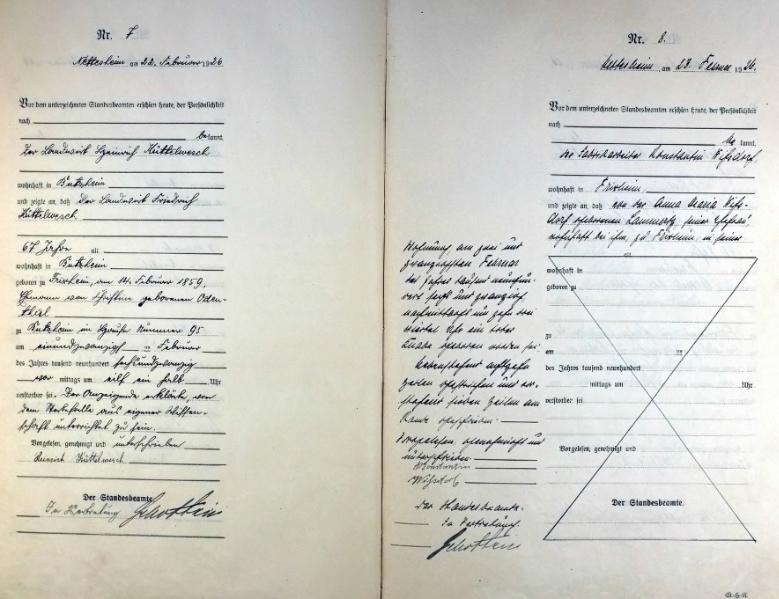 Nr. 7
Nettesheim am 22. Februar 1926
Vor dem unterzeichneten Standesbeamten erschien heute, der Persönlichkeit
nach
bekannt,
der Landwirt Heinrich Hüttelwesch
wohnhaft in Butzheim
und zeigte an, daß der Landwirt Friedrich
Hüttelwesch
67 Jahre alt
wohnhaft in Butzheim
geboren zu Frixheim, am 14. Februar 1859,
Ehemann von Christina geborenen Oden-
thal
zu Butzheim in Hause Nummer 95
am einundzwanzigsten Februar
des Jahres tausend neunhundert sechsundzwanzig
vor mittags um elf ein halb Uhr
verstorben sei. Der Anzeigende erklärte, von
dem Sterbefalle aus eigener Wissen-
schaft unterrichtet zu sein.
Vorgelesen, genehmigt und unterschrieben
Heinrich Hüttelwesch
Der Standesbeamte
In Vertretung
Nr. 8.
Nettesheim, am 23. Februar 1926.
Vor dem unterzeichneten Standesbeamten erschien heute, der Persönlichkeit
nach
be kannt,
der Fabrikarbeiter Konstantin
wohnhaft in Frixheim,
und zeigte an, daß von der Anna Maria
geborenen Lammertz, seiner Ehefrau,
wohnhaft bei ihm, zu Frixheim, in seiner
Wohnung am zwei und
zwanzigsten Februar
des Jahres tausend neunhun-
dert sechs und zwanzig
nachmittags um zehn drei
viertel Uhr ein toter
Knabe geboren worden sei.
Nebenstehend achtzehn
Zeilen gestrichen und vor-
stehend sieben Zeilen am
Rande geschrieben.
Vorgelesen, genehmigt und
unterschrieben
Konstantin
Der Standesbeamte.
In Vertretung.
alt
wohnhaft in
geboren zu
zu
am ten
des Jahres tausend neunhundert
mittags um Uhr
verstorben sei
Vorgelesen, genehmigt und
Der Standesbeamte.